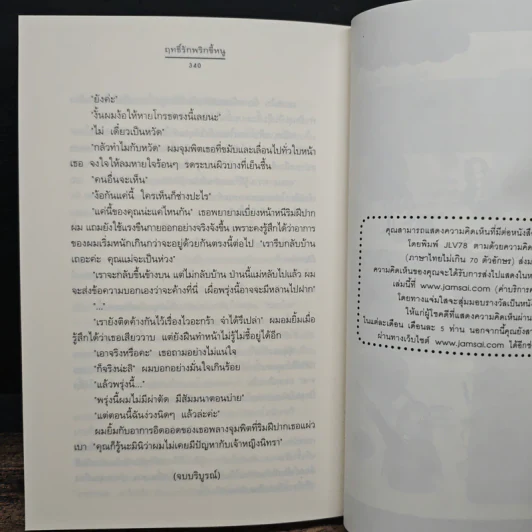 ฤทธิ์รักพริกขี้หนู
340
"ยังค่ะ"
"งั้นผมง้อให้หายโกรธตรงนี้เลยนะ"
"ไม่ เดี๋ยวเป็นหวัด"
"กลัวทำไมกับหวัด" ผมจุมพิตเธอที่ขมับและเลื่อนไปทั่วใบหน้า
เธอ จงใจให้ลมหายใจร้อนๆ รดระบนผิวบางที่เย็นชื้น
"คนอื่นจะเห็น"
"ง้อกันแค่นี้ ใครเห็นก็ช่างปะไร"
"แค่นี้ของคุณน่ะแค่ไหนกัน" เธอพยายามเบี่ยงหน้าหนีริมฝีปาก
ผม แถมยังใช้แรงขืนกายออกอย่างจริงจังขึ้น เพราะคงรู้สึกได้ว่าอาการ
ของผมเริ่มหนักเกินกว่าจะอยู่ด้วยกันตรงนี้ต่อไป "เรารีบกลับบ้าน
เถอะค่ะ คุณแม่จะเป็นห่วง"
"เราจะกลับขึ้นข้างบน แต่ไม่กลับบ้าน ป่านนี้แม่หลับไปแล้ว ผม
จะส่งข้อความบอกเองว่าจะค้างที่นี่ เผื่อพรุ่งนี้อาจจะมีหลานไปฝาก"
"..."
"เรายังติดค้างกันไว้เรื่องไวอะกร้า จำได้รึเปล่า" ผมอมยิ้มเมื่อ
รู้สึกได้ว่าเธอเสียววาบ แต่ยังฝืนทำหน้าไม่รู้ไม่ชี้อยู่ได้อีก
"เอาจริงหรือคะ" เธอถามอย่างไม่แน่ใจ
"ก็จริงน่ะสิ" ผมบอกอย่างมั่นใจเกินร้อย
"แล้วพรุ่งนี้..."
"พรุ่งนี้ผมไม่มีผ่าตัด มีสัมมนาตอนบ่าย"
"แต่ตอนนี้ฉันง่วงนิดๆ แล้วล่ะค่ะ"
ผมยิ้มกับอาการอิดออดของเธอพลางจุมพิตที่ริมฝีปากเธอแผ่ว
เบา "คุณก็รู้นะมินิว่าผมไม่เคยมีปัญหากับเจ้าหญิงนิทรา"
(จบบริบูรณ์)
คุณสามารถแสดงความคิดเห็นที่มีต่อหนังสือ
โดยพิมพ์ JLV78 ตามด้วยความคิด
(ภาษาไทยไม่เกิน 70 ตัวอักษร) ส่งม
ความคิดเห็นของคุณจะได้รับการส่งไปแสดงในห
เล่มนี้ที่ www.jamsai.com (ค่าบริการค
โดยทางแจ่มใสจะสุ่มมอบรางวัลเป็นหนัง
ให้แก่ผู้โชคดีที่แสดงความคิดเห็นผ่าน
ในแต่ละเดือน เดือนละ 5 ท่าน นอกจากนี้คุณยังส
ผ่านทางเว็บไซต์ www.jamsai.com ได้อีกช่